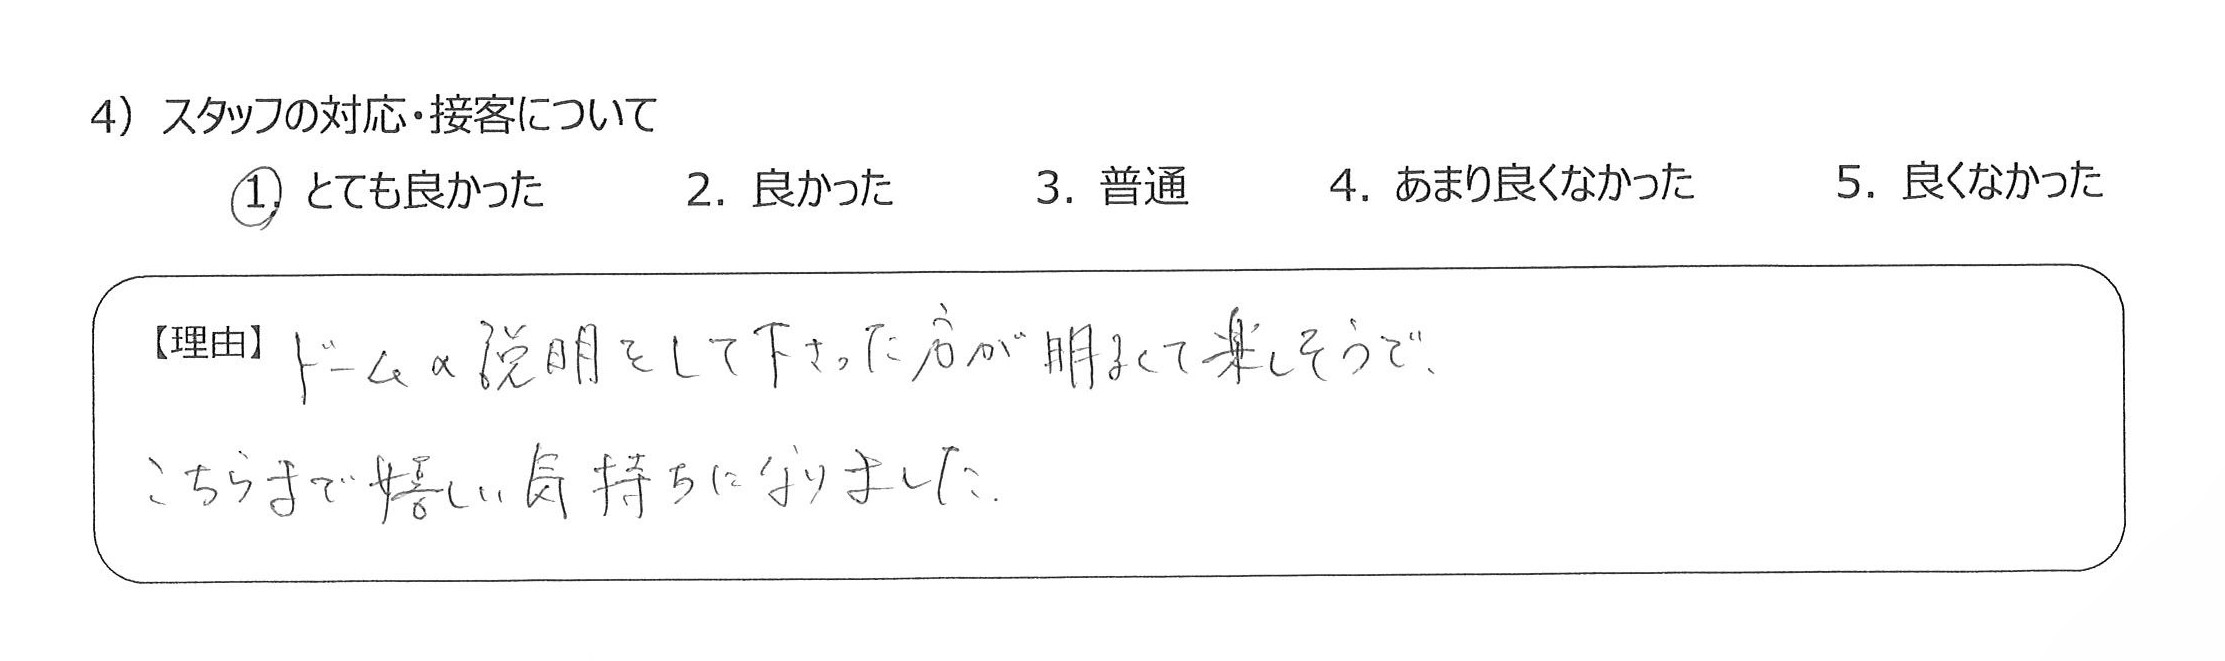 4) スタッフの対応・接客について
1. とても良かった 2. 良かった 3. 普通 4. あまり良くなかった 5. 良くなかった
【理由】ドームの説明をして下さった方が明るくて楽しそうで、
こちらまで嬉しい気持ちになりました。